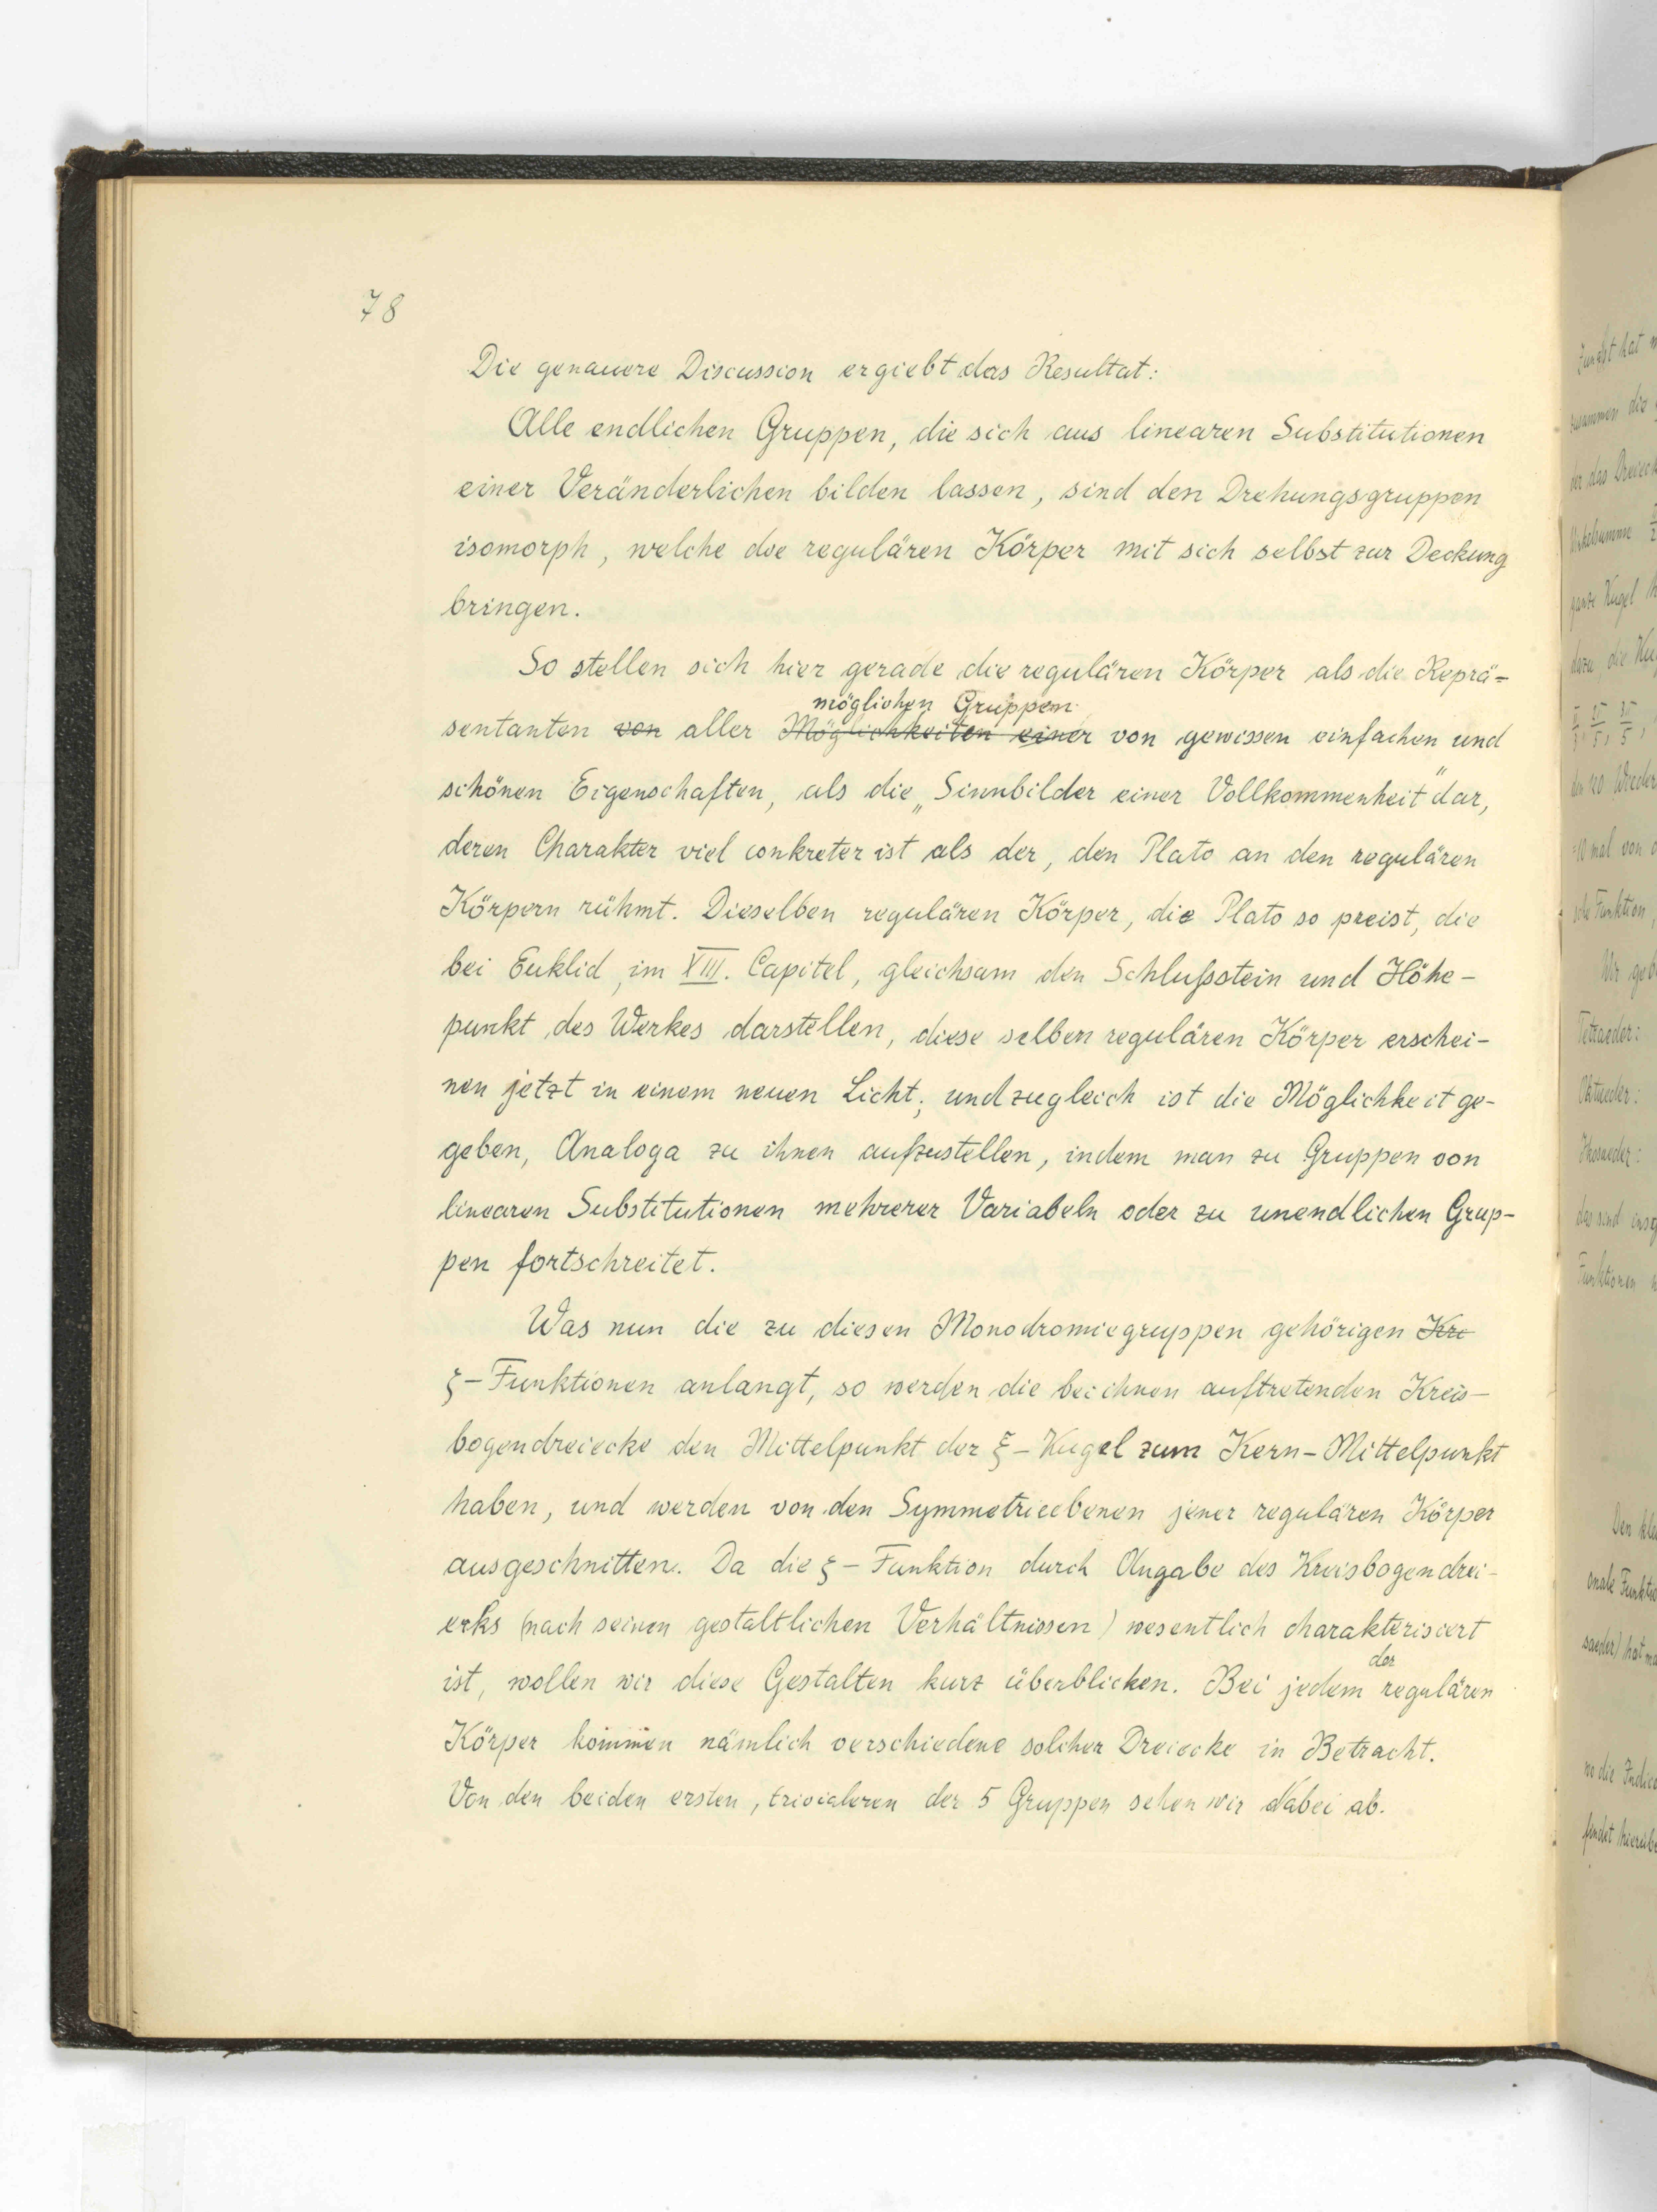 78
Die genauere Discussion ergiebt das Resultat:
Alle endlichen Gruppen, die sich aus linearen Substitutionen
einer Veränderlichen bilden lassen, sind den Drehungsgruppen
isomorph, welche die regulären Körper mit sich selbst zur Deckung
bringen.
So stellen sich hier gerade die regulären Körper als die Reprä-
möglichen Gruppen
sentanten von aller Möglichkeiten einer von gewissen einfachen und
schönen Eigenschaften, als die „Sinnbilder einer Vollkommenheit" dar,
deren Charakter viel conkreter ist als der, den Plato an den regulären
Körpern rühmt. Dieselben regulären Körper, die Plato so preist, die
bei Euklid, im XIII. Capitel, gleichsam den Schlußstein und Höhe-
punkt des Werkes darstellen, diese selben regulären Körper erschei-
nen jetzt in einem neuen Licht; und zugleich ist die Möglichkeit ge-
geben, Analoga zu ihnen aufzustellen, indem man zu Gruppen von
linearen Substitutionen mehrerer Variabeln oder zu unendlichen Grup-
pen fortschreitet.
Was nun die zu diesen Monodromiegruppen gehörigen Kre
ξ-Funktionen anlangt, so werden die bei ihnen auftretenden Kreis-
bogendreiecke den Mittelpunkt der ξ-Kugel zum Kern-Mittelpunkt
haben, und werden von den Symmetrieebenen jener regulären Körper
ausgeschnitten. Da die ξ-Funktion durch Angabe des Kreisbogendrei-
ecks (nach seinen gestaltlichen Verhältnissen) wesentlich charakterisiert
der
ist, wollen wir diese Gestalten kurz überblicken. Bei jedem regulären
Körper kommen nämlich verschiedene solcher Dreiecke in Betracht.
Von den beiden ersten, trivialeren der 5 Gruppen sehen wir dabei ab.
Tetraeder:
Oktaeder:
Ikosaeder: